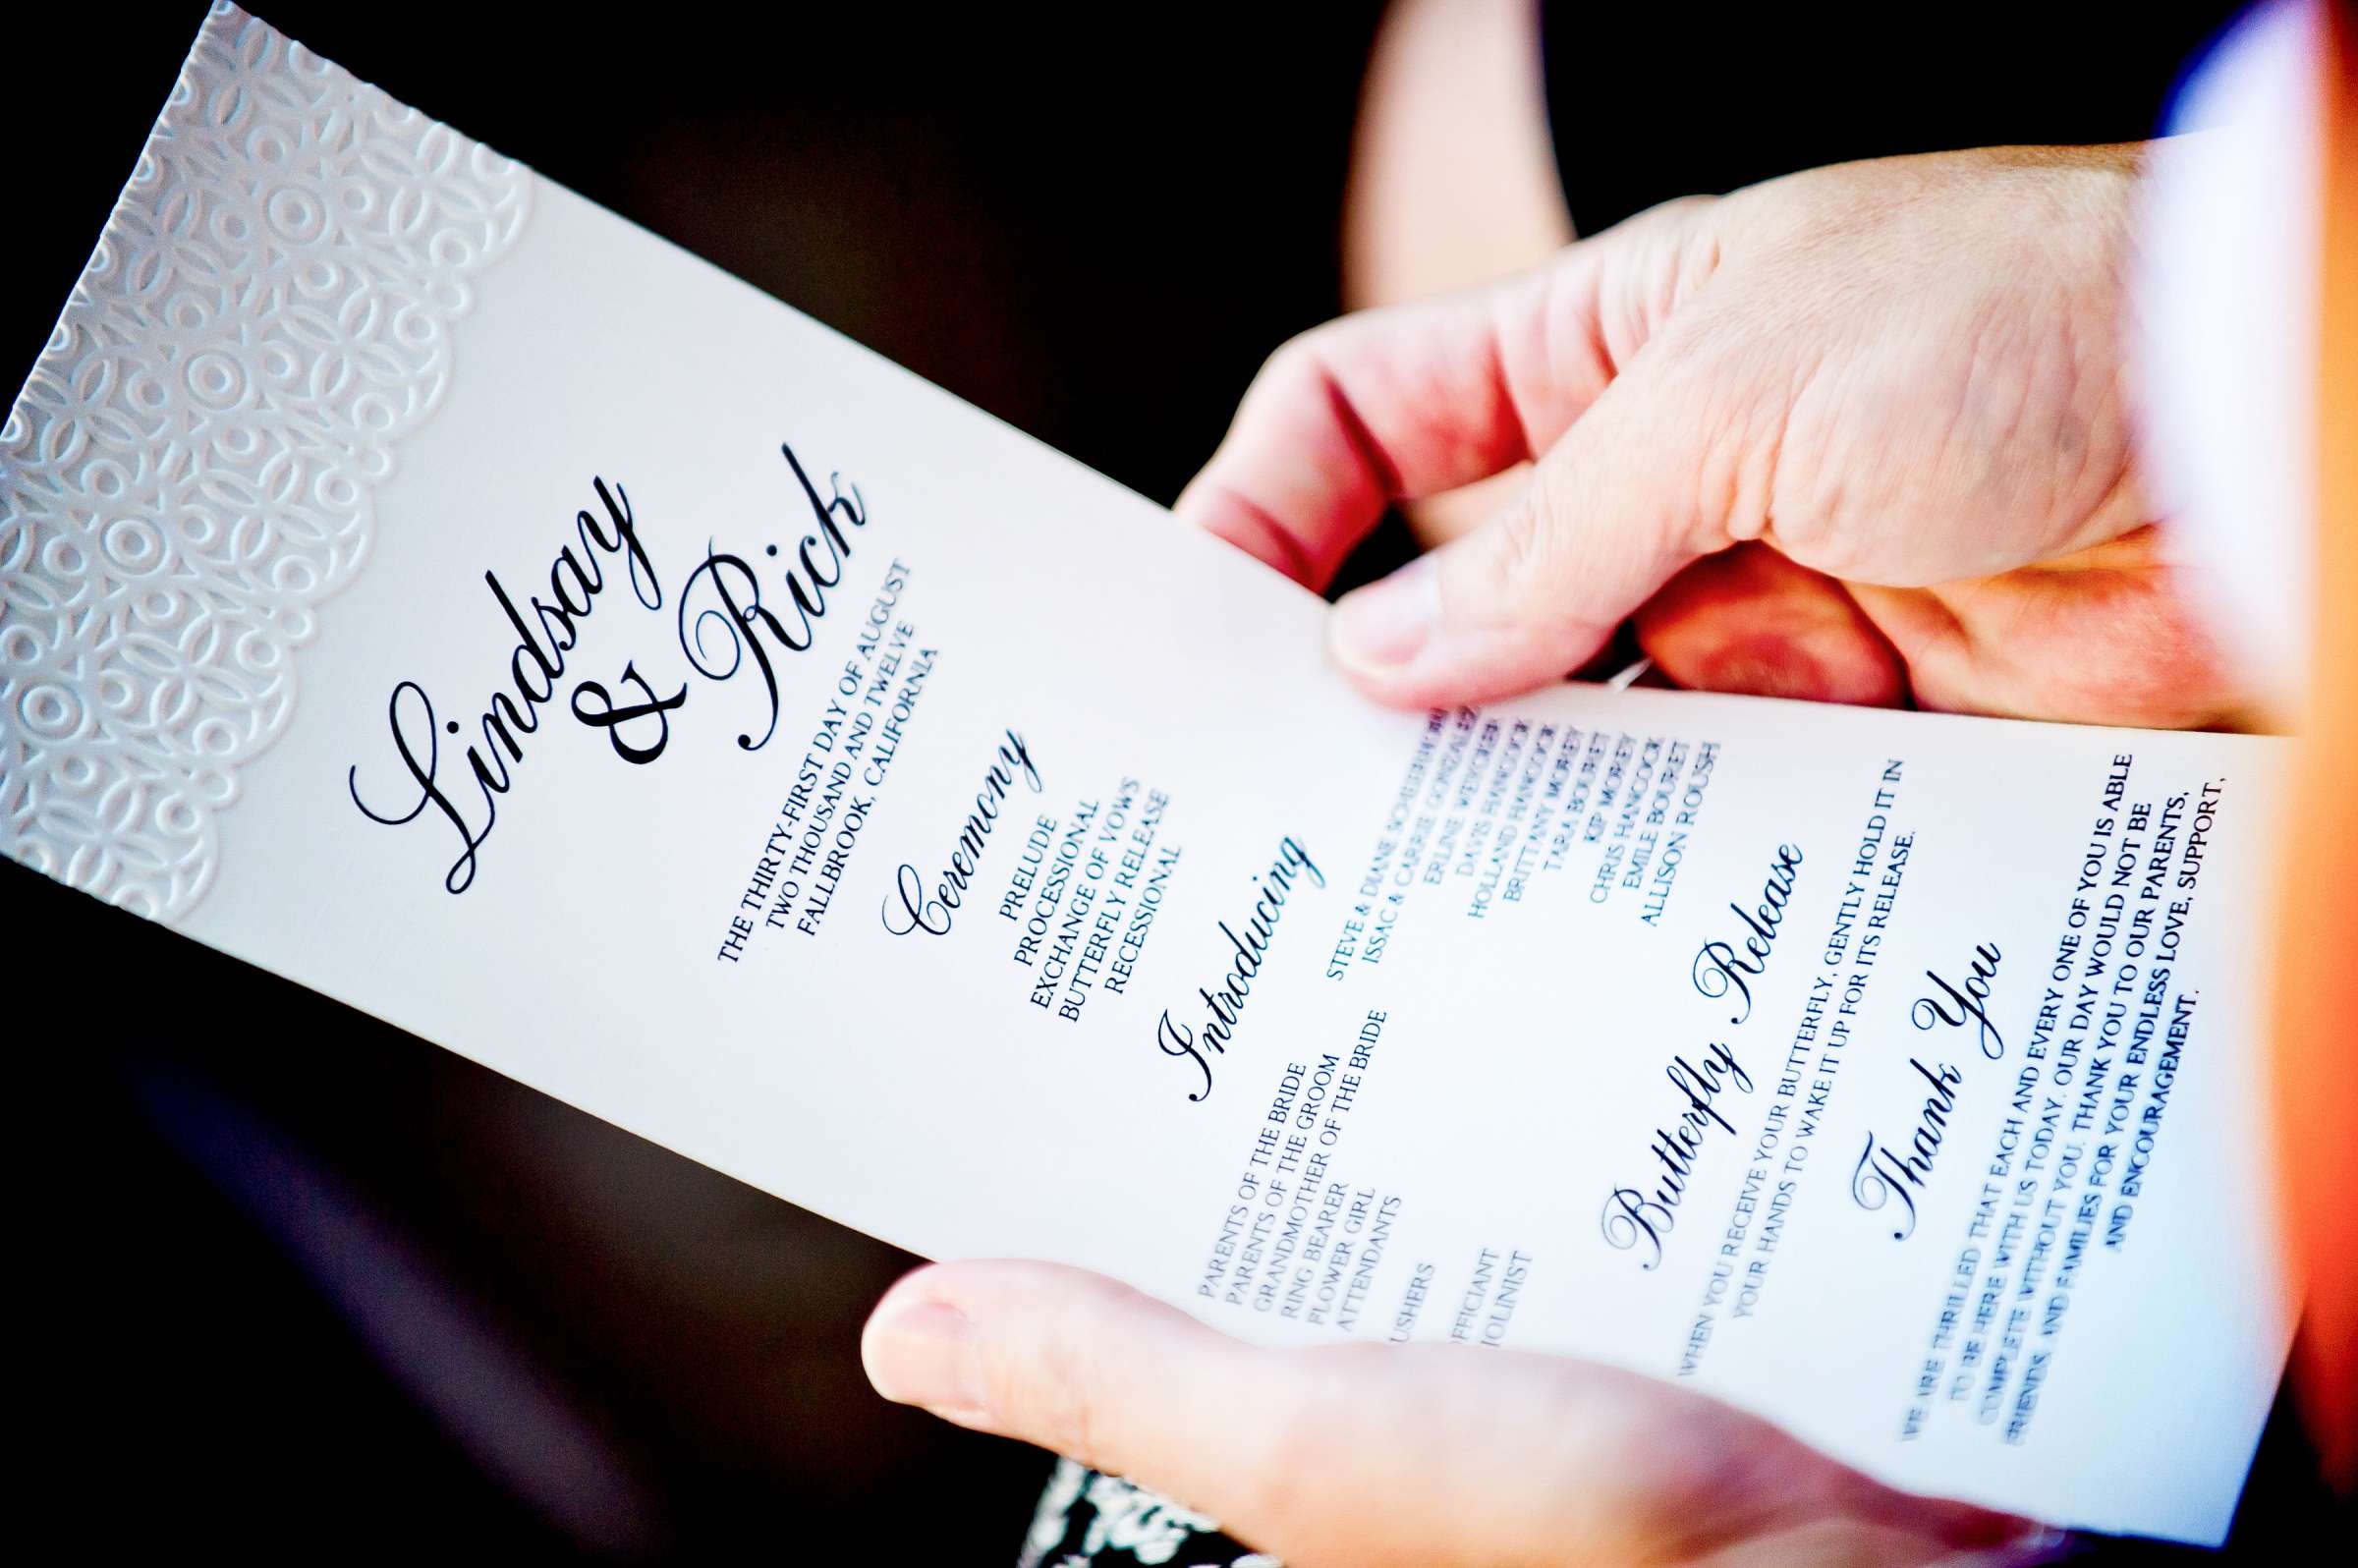 Lindsay
&
Rick
THE THIRTY-FIRST DAY OF AUGUST
TWO THOUSAND AND TWELVE
FALLBROOK, CALIFORNIA
Ceremony
PRELUDE
PROCESSIONAL
EXCHANGE OF VOWS
BUTTERFLY RELEASE
RECESSIONAL
Introducing
PARENTS OF THE BRIDE
STEVE & DIANE
PARENTS OF THE GROOM
ISSAC & CARRIE GONZALES
GRANDMOTHER OF THE BRIDE
ERLINE
RING BEARER
DAVIS HANCOCK
FLOWER GIRL
HOLLAND HANCOCK
ATTENDANTS
BRITTANY MOREY
TARA BOURET
USHERS
KIP MOREY
CHRIS HANCOCK
EMILE BOURET
ALLISON ROUSH
Butterfly Release
WHEN YOU RECEIVE YOUR BUTTERFLY, GENTLY HOLD IT IN
YOUR HANDS TO WAKE IT UP FOR ITS RELEASE.
Thank You
WE ARE THRILLED THAT EACH AND EVERY ONE OF YOU IS ABLE
TO BE HERE WITH US TODAY. OUR DAY WOULD NOT BE
COMPLETE WITHOUT YOU. THANK YOU TO OUR PARENTS,
FRIENDS, AND FAMILIES FOR YOUR ENDLESS LOVE, SUPPORT,
AND ENCOURAGEMENT.